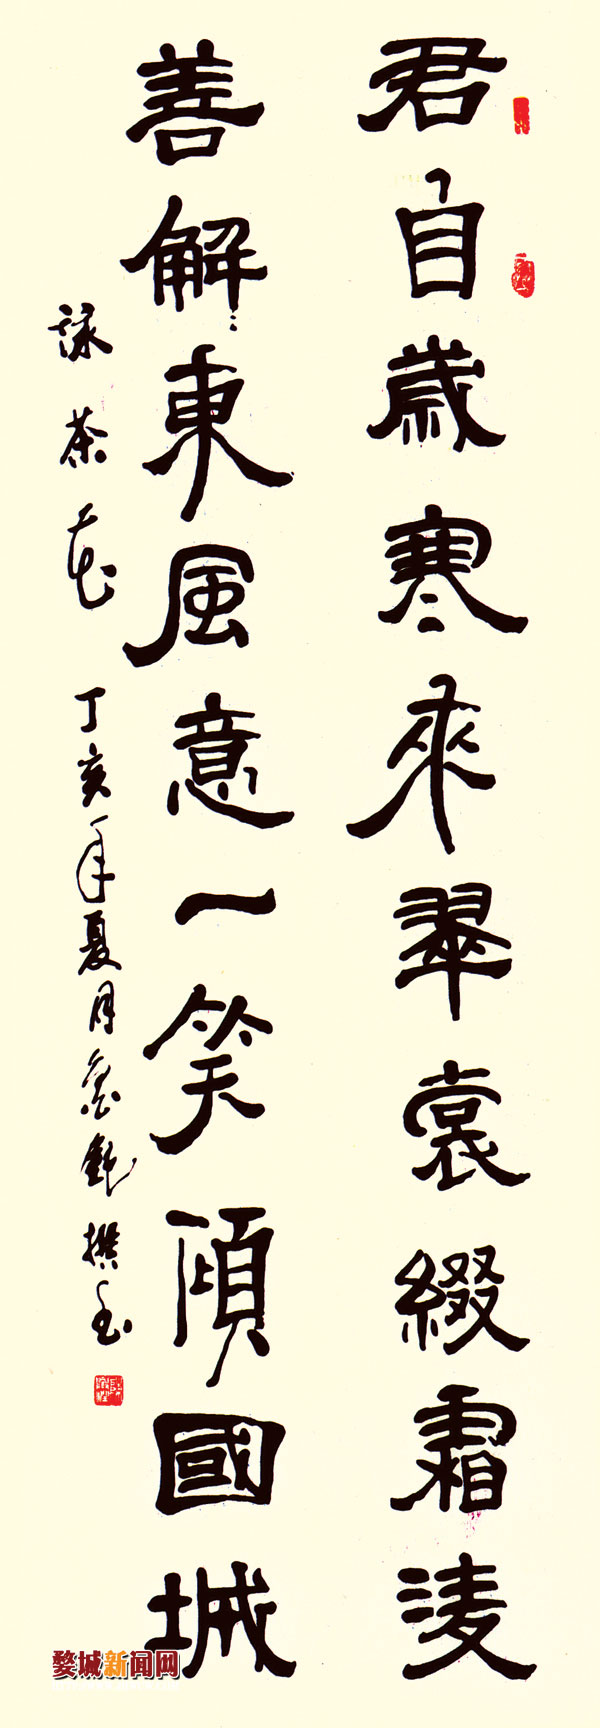 君自歲寒來翠裳綴霜淩
善解東風意一笑傾國城
詠茶花
丁亥年夏月 撰書
婺城新闻网